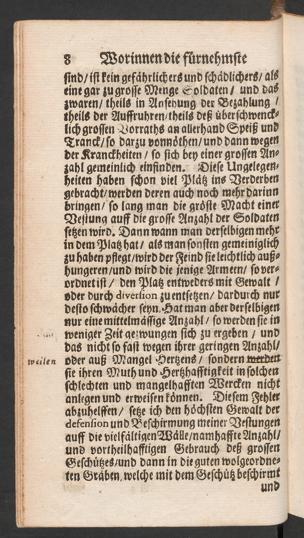 8 Worinnen die fürnehmste
sind / ist kein gefährlichers und schädlichers / als
eine gar zu grosse Menge Soldaten / und das
zwaren / theils in Ansehung der Bezahlung /
theils der Auffruhren / theils deß überschwenck-
lich grossen Vorraths an allerhand Speiß und
Tranck / so darzu vonnöthen / und dann wegen
der Kranckheiten / so sich bey einer grossen An-
zahl gemeinlich einfinden. Diese Ungelegen-
heiten haben schon viel Plätz ins Verderben
gebracht / werden deren auch noch mehr darinn
bringen / so lang man die gröste Macht einer
Vestung auff die grosse Anzahl der Soldaten
setzen wird. Dann wann man derselbigen mehr
in dem Platz hat / als man sonsten gemeiniglich
zu haben pflegt / wird der Feind sie leichtlich auß-
hungeren / und wird die jenige Armem / so ver-
ordnet ist / den Platz entweders mit Gewalt /
oder durch diversion zu entsetzen / dardurch nur
desto schwächer seyn. Hat man aber derselbigen
nur eine mittelmässige Anzahl / so werden sie in
weniger Zeit gezwungen sich zu ergeben / und
das nicht so fast wegen ihrer geringen Anzahl /
oder auß Mangel Hertzens / sondern werden
weilen
sie ihren Muth und Hertzhafftigkeit in solchen
schlechten und mangelhafften Wercken nicht
anlegen und erweisen können. Diesem Fehler
abzuhelffen / setze ich den höchsten Gewalt der
defension und Beschirmung meiner Vestungen
auff die vielfältigen Wälle / namhaffte Anzahl /
und vortheilhafftigen Gebrauch deß grossen
Geschützes / und dann in die guten wolgeordne-
ten Gräben / welche mit dem Geschütz beschirmt
und